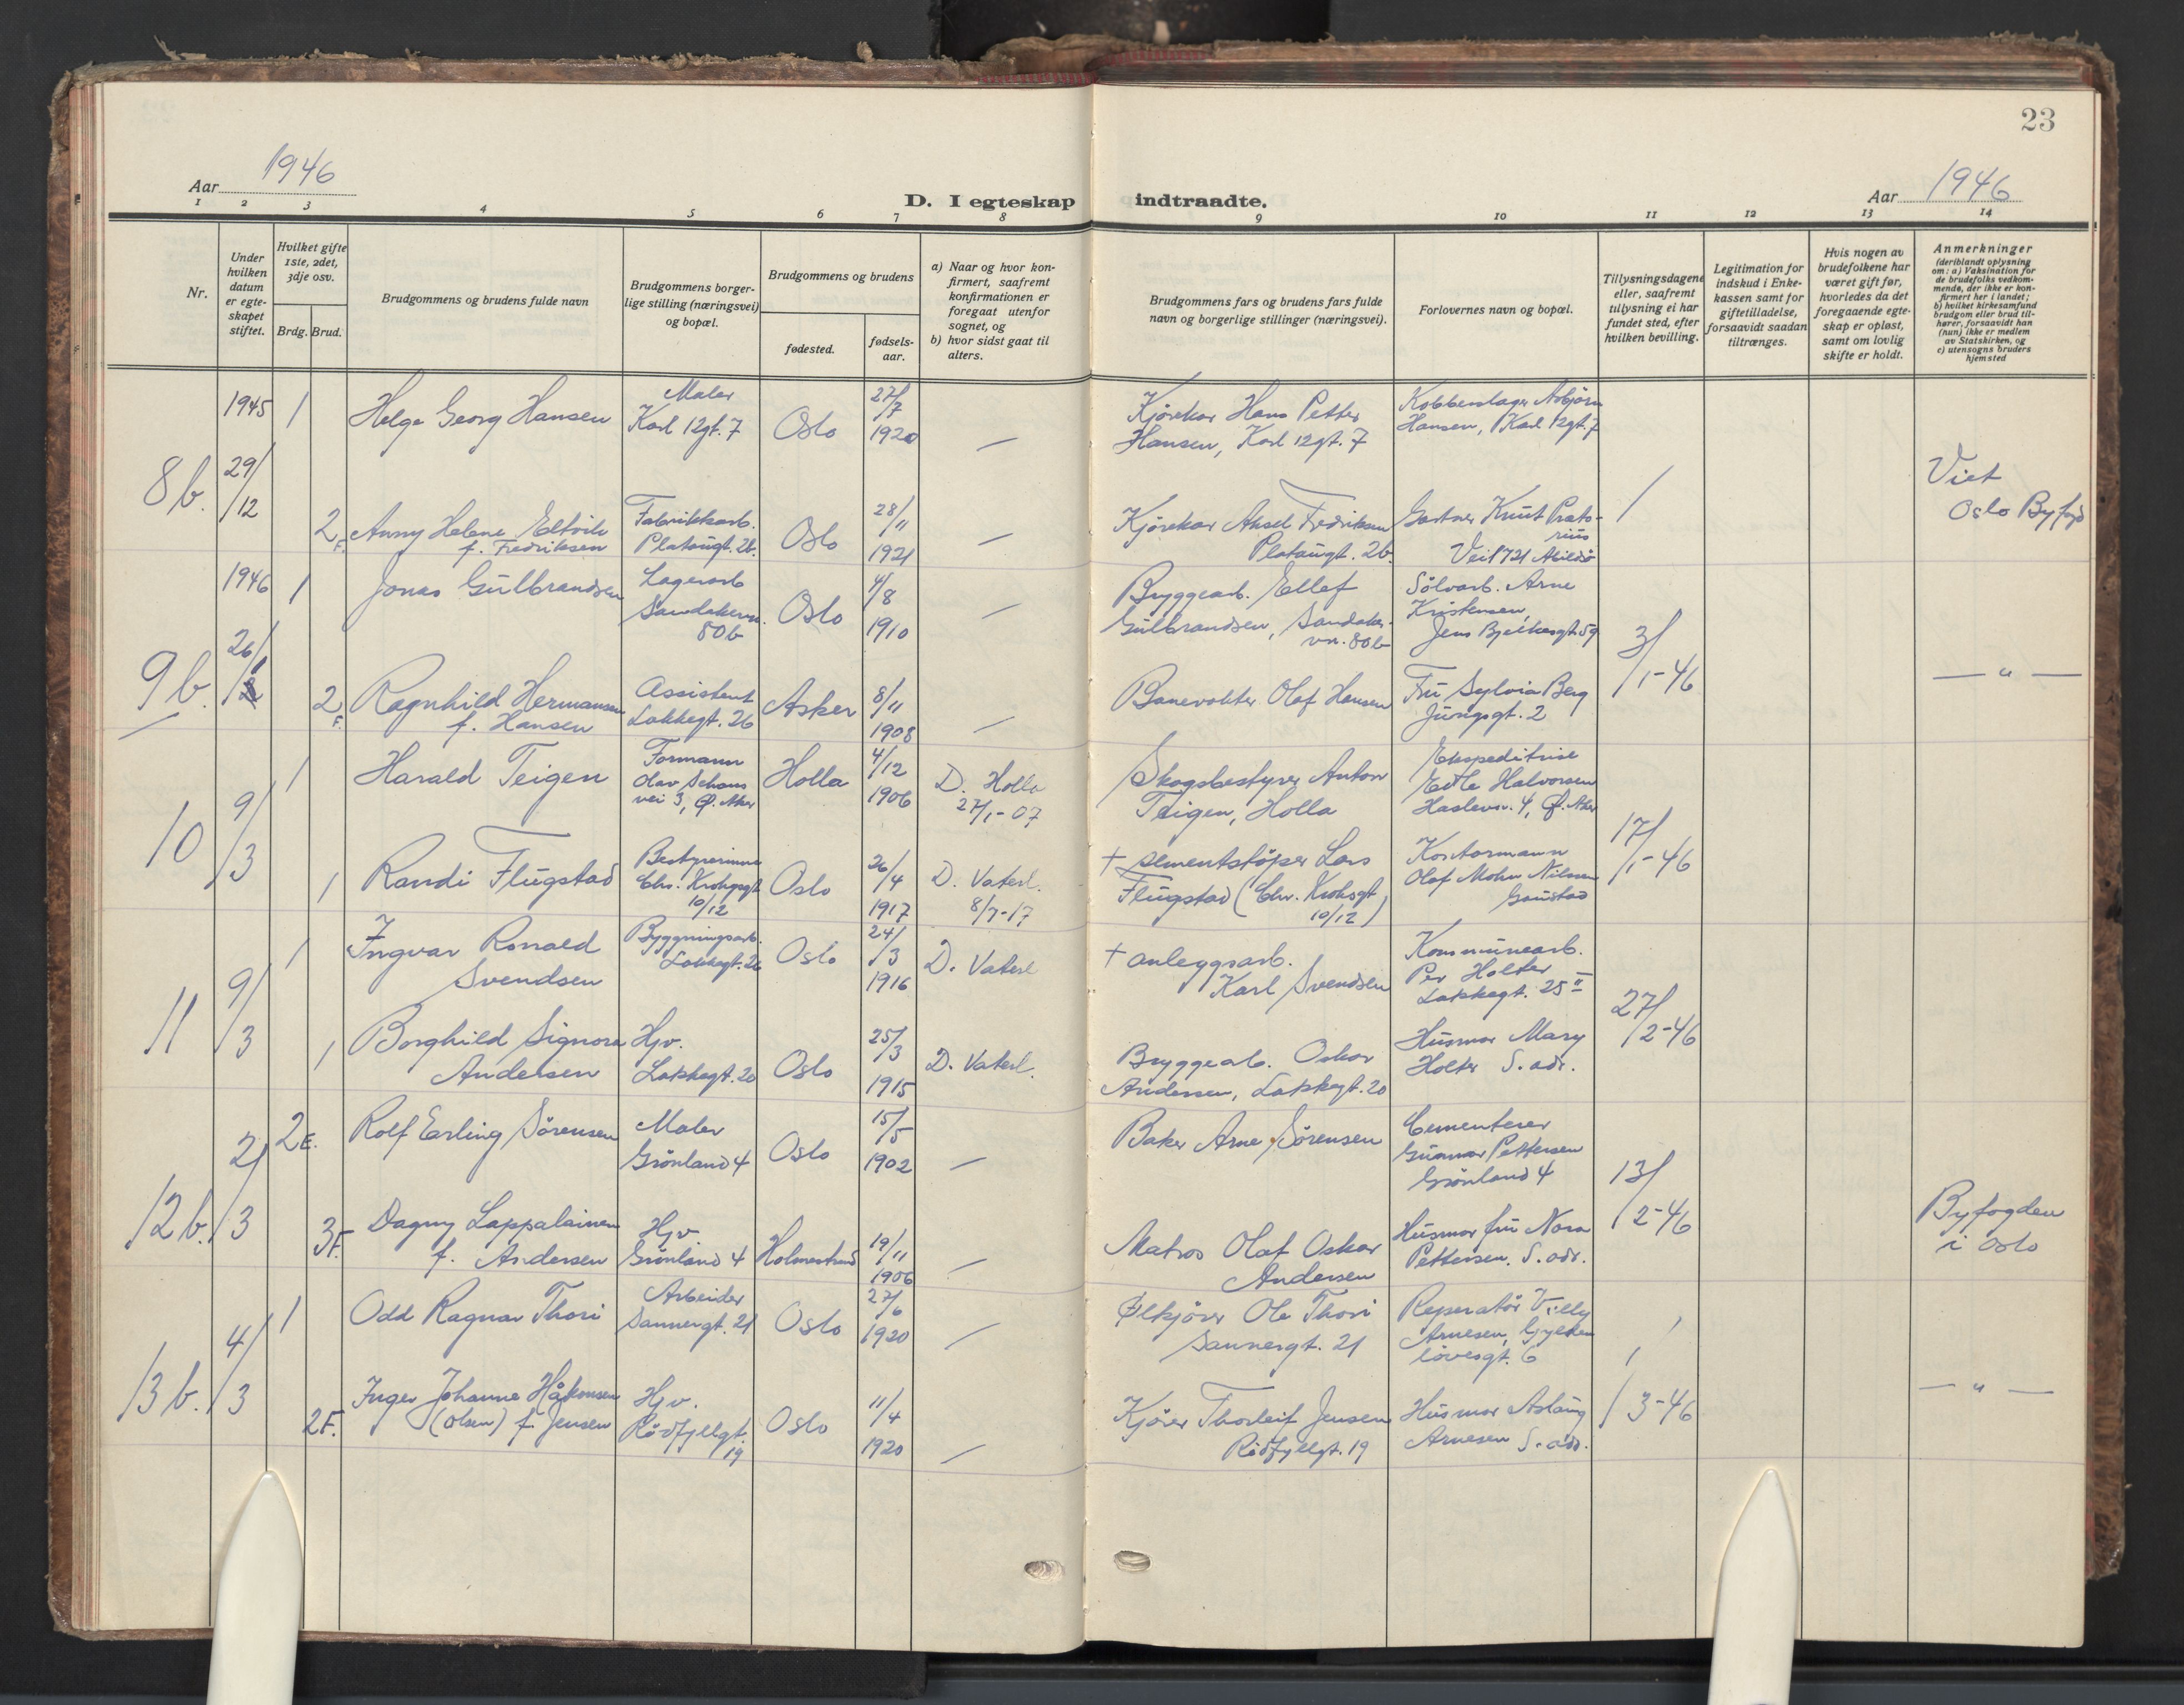 23
Aar 1946
D. I egteskap indtraadte.
Aar 1946
1 2 3 4 5 6 7 8 9 10 11 12 13 14
Nr.
Under hvilken datum er egteskapet stiftet.
Hvilket gifte 1ste, 2det, 3dje osv.
Brdg. Brud.
Brudgommens og brudens fulde navn
Brudgommens borgerlige stilling (næringsvei) og bopæl.
Brudgommens og brudens
fødested.
fødselsaar.
a) Naar og hvor konfirmert, saafremt konfirmationen er foregaat utenfor sognet, og
b) hvor sidst gaat til alters.
Brudgommens fars og brudens fars fulde navn og borgerlige stillinger (næringsvei).
Forlovernes navn og bopæl.
Tillysningsdagene eller, saafremt tillysning ei har fundet sted, efter hvilken bevilling.
Legitimation for indskud i Enkekassen samt for giftetilladelse, forsaavidt saadan tiltrænges.
Hvis nogen av brudefolkene har været gift før, hvorledes da det foregaaende egteskap er opløst, samt om lovlig skifte er holdt.
Anmerkninger
(deriblandt oplysning om: a) Vaksination for de brudefolks vedkommende, der ikke er konfirmert her i landet; b) hvilket kirkesamfund brudgom eller brud tilhører, forsaavidt han (hun) ikke er medlem av Statskirken, og c) utensogns bruders hjemsted
8b.
1945
29/12
1
Helge Georg Hansen
Maler
Karl 12gt. 7
Oslo
27/7
1920
—
Kjørekar Hans Petter
Hansen, Karl 12gt. 7
Kobberslager Asbjørn
Hansen, Karl 12gt. 7
/
Viet
Oslo Byfogd
2 F.
Anny Helene Eltvik
f. Fredriksen
Fabrikkarb.
Platougt. 2b.
Oslo
28/11
1921
—
Kjørekar Aksel Fredriksen
Platougt. 2b.
Gartner Knut Prætorius
Vei 1721 Abildsø
9b.
1946
26/1
1
Jonas Gulbrandsen
Lagerarb
Sandakerv.
80b
Oslo
4/8
1910
—
Bryggearb. Ellef
Gulbrandsen, Sandaker-
vn. 80b
Sölvarb. Arne
Kristensen,
Jens Bjelkesgt. 59
3/1-46
— " —
2 F.
Ragnhild Hermansen
f. Hansen
Assistent
Lakkegt. 26
Asker
8/11
1908
—
Banevokter Olaf Hansen
Fru Sylvia Berg
Jürgsgt. 2
10
9/3
1
Harald Teigen
Formann
Olav Schous
vei 3, Ø. Aker
Holla
4/12
1906
D. Holla
27/1-07
Skogsbestyrer Anton
Teigen, Holla
Ekspeditrise
Edle Halvorsen
Haslevn. 4, Ø. Aker
17/1-46
1
Randi Flugstad
Bestyrerinne
Chr. Krohgsgt
10/12
Oslo
26/4
1917
D. Vaterl.
8/7-17
† sementstøper Lars
Flugstad (Chr. Krohgsgt
10/12)
Kontormann
Olaf Mohn Nilssen
Gaustad
11
9/3
1
Ingvar Ronald
Svendsen
Bygningsarb.
Lakkegt. 26
Oslo
24/3
1916
D. Vaterl
† anleggsarb.
Karl Svendsen
Kommunearb.
Per Holter
Lakkegt. 25 II
27/2-46
1
Borghild Signora
Andersen
Hjv.
Lakkegt. 20
Oslo
25/3
1915
D. Vaterl.
Bryggearb. Oskar
Andersen, Lakkegt. 20
Husmor Mary
Holter S. adr.
12b.
2/3
2 E.
Rolf Erling Sörensen
Maler
Grönland 4
Oslo
15/5
1902
—
Baker Arne Sörensen
Cementerer
Gunnar Pettersen
Grönland 4
13/2-46
Byfogden
i Oslo
3 F.
Dagny Lappalainen
f. Andersen
Hjv
Grönland 4
Holmestrand
19/11
1906
—
Matros Olaf Oskar
Andersen
Husmor fru Nora
Pettersen. S. adr.
13b.
4/3
1
Odd Ragnar Thori
Arbeider
Sannergt. 21
Oslo
27/6
1920
—
Ølkjører Ole Thori
Sannergt. 21
Reperatör Villy
Arnesen, Gylden
lövesgt. 6
1/3-46
— " —
2 F.
Inger Johanne Håkonsen
(Olsen) f. Jensen
Hjv.
Rödfyllgt.
19
Oslo
11/4
1920
—
Kjører Thorleif Jensen
Rödfyllgt. 19
Husmor Aslaug
Arnesen S. adr.